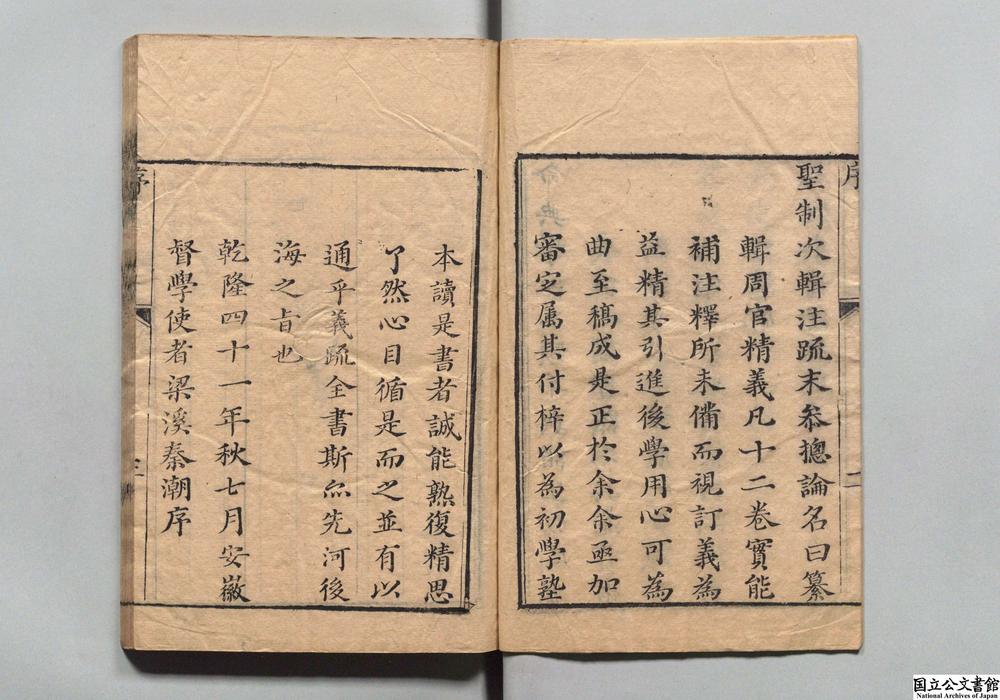 序
二
聖制次輯注疏末叅摠論名曰纂
輯周官精義凡十二卷實能
補注釋所未備而視訂義為
益精其引進後學用心可為
曲至稿成是正於余余亟加
審定属其付梓以為初學塾
本讀是書者誠能熟復精思
了然心目循是而之並有以
通乎義疏全書斯亦先河後
海之旨也
乾隆四十一年秋七月安徽
督學使者梁溪秦潮序
序
三
国立公文書館
National Archives of Japan